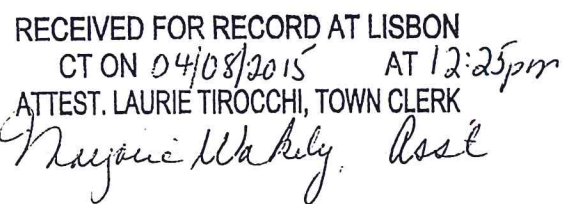 RECEIVED FOR RECORD AT LISBON
CT ON 04/08/2015 AT 12:25pm
ATTEST. LAURIE TIROCCHI, TOWN CLERK
Marjorie Wakely, Asst